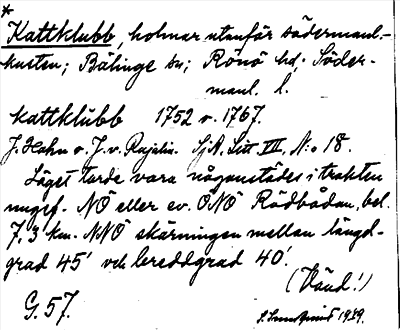 *
Kattklubb, holmar utanför södermanl.-
kusten; Bälinge sn; Rönö hd; Söder-
manl. l.
Kattklubb 1752 v. 1767.
J. Hahn v. J. v. Rajalin. Sjk. Litt VII, N:o 18.
Läget torde vara någonstädes i trakten
ungef. NO eller ev. ONO Rödbådan, bel.
7,3 km. NNO skärningen mellan längd-
grad 45' och breddgrad 40'.
(Vänd!)
G. 57.
1939.